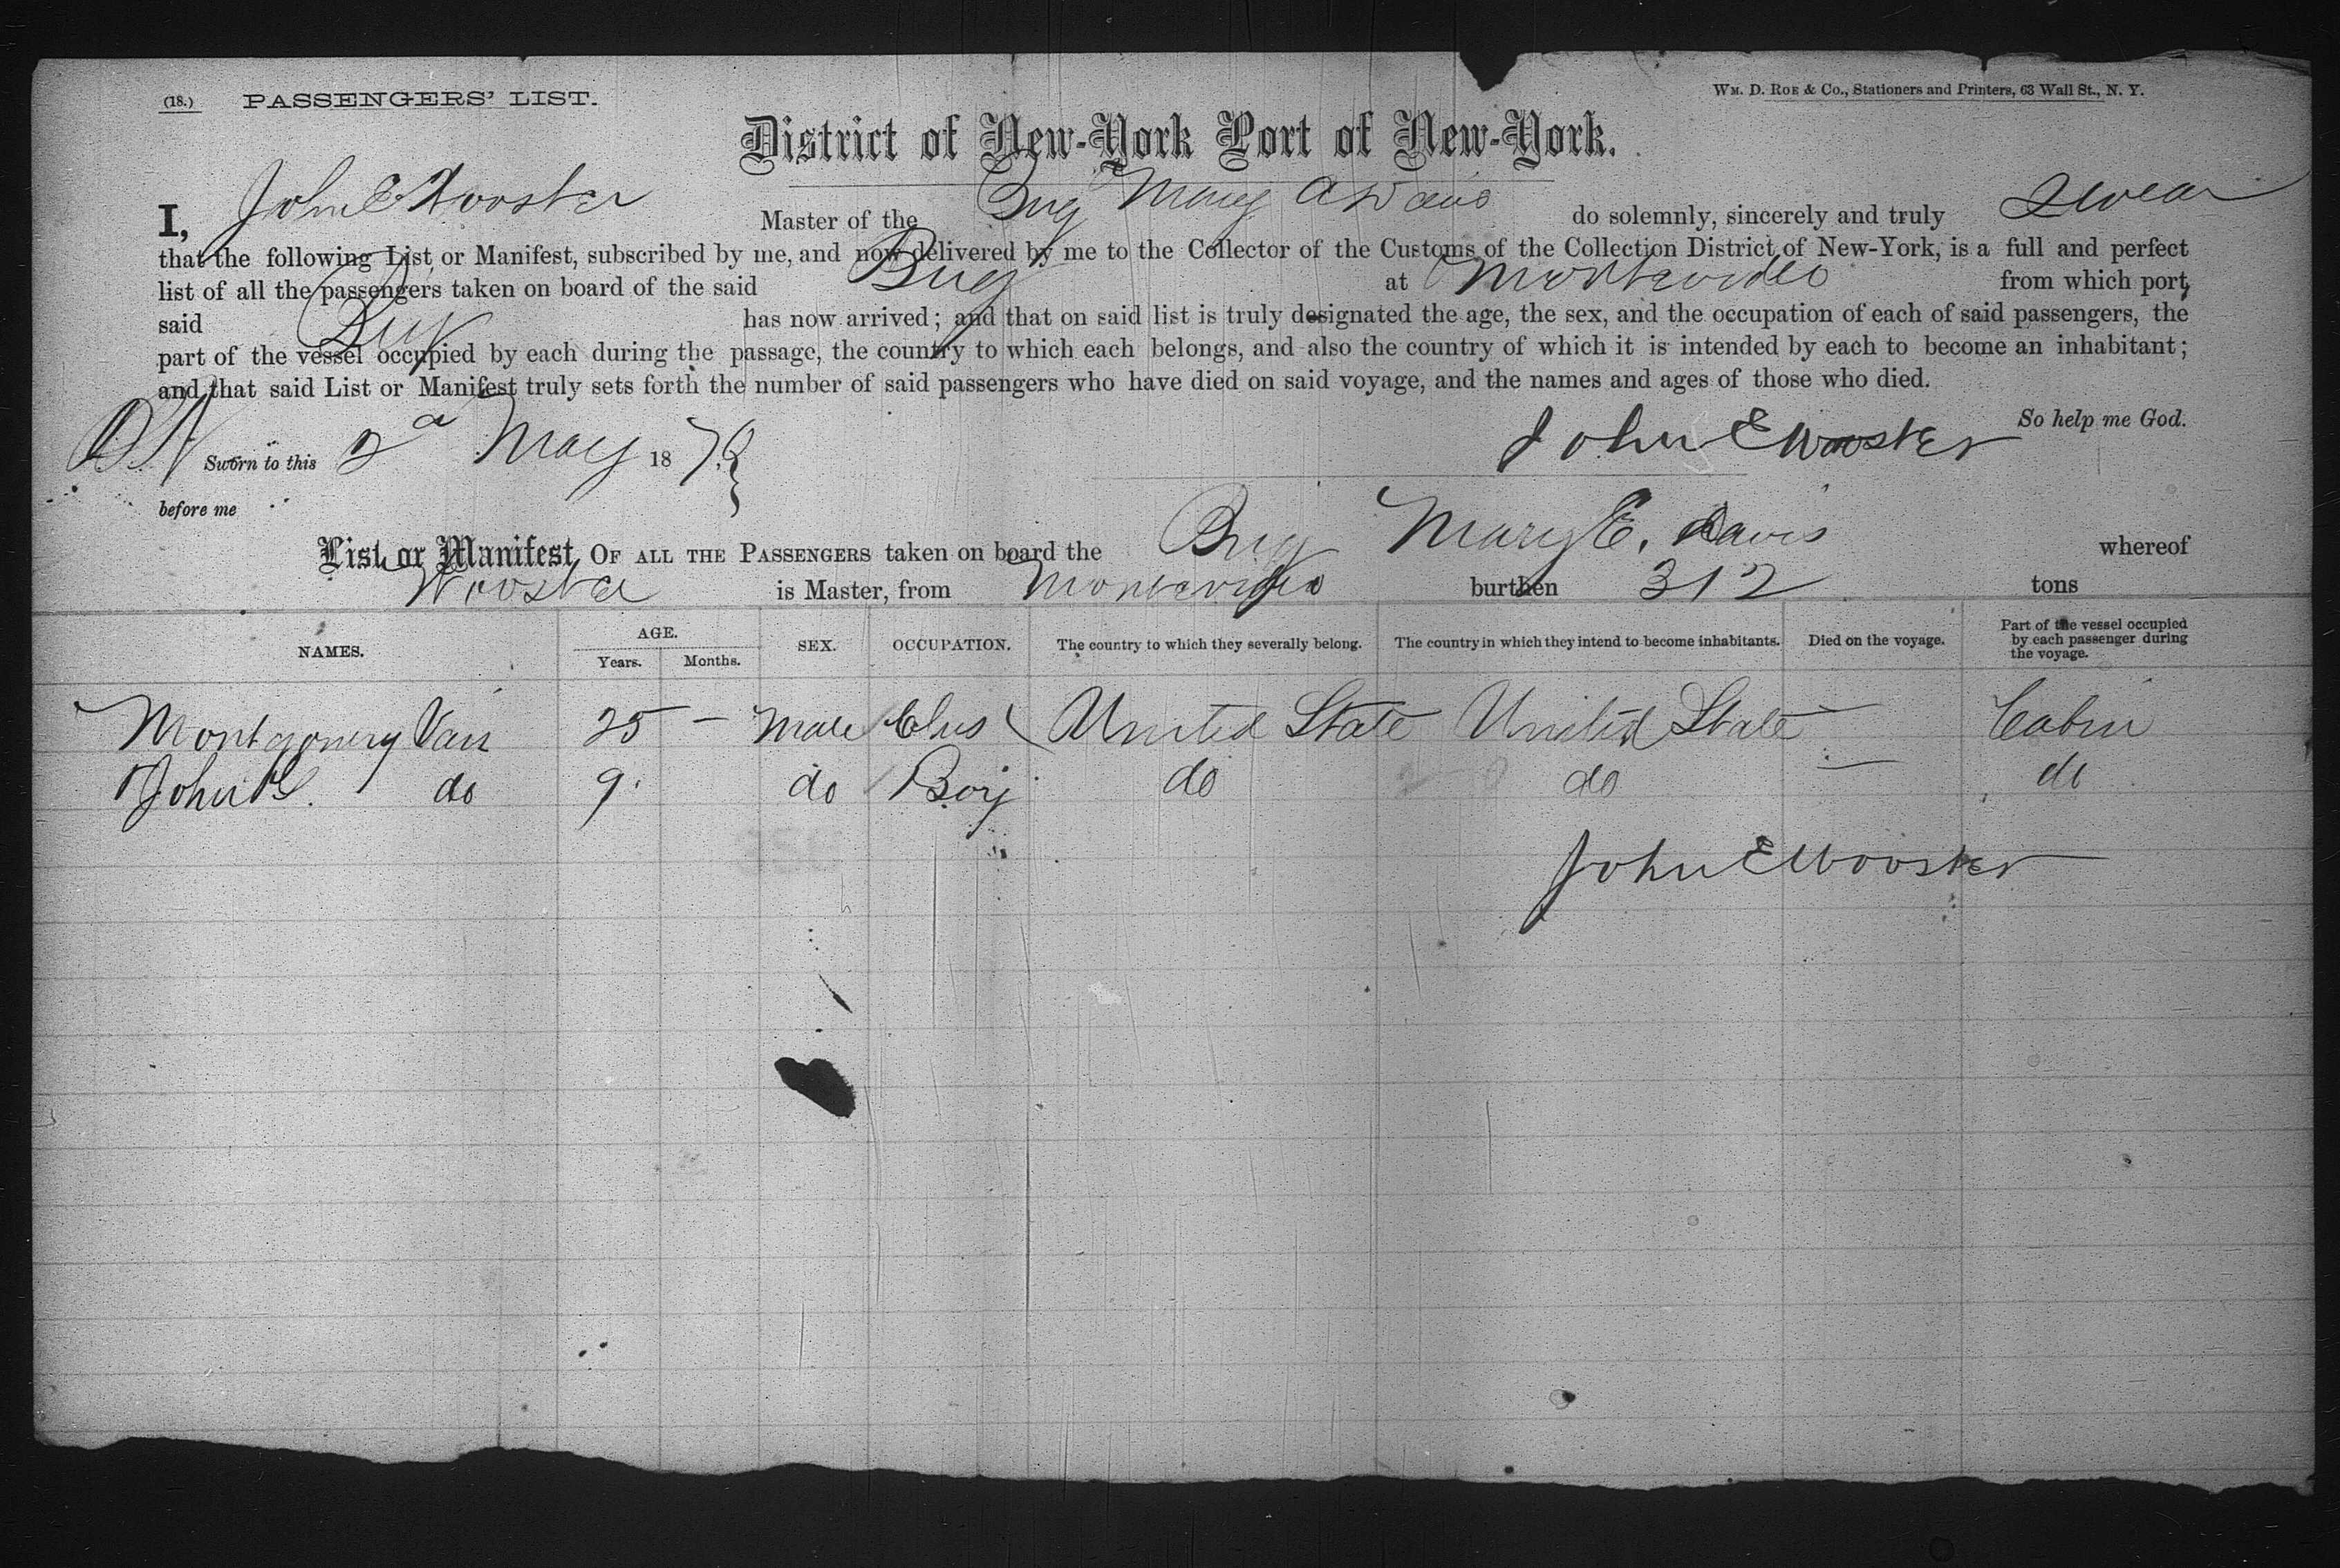 (18.) PASSENGERS' LIST. Wm. D. Roe & Co., Stationers and Printers, 63 Wall St., N. Y.
District of New-York Port of New-York.
I, John E Wooster Master of the Brig Mary A Davis do solemnly, sincerely and truly Swear
that the following List or Manifest, subscribed by me, and now delivered by me to the Collector of the Customs of the Collection District of New-York, is a full and perfect
list of all the passengers taken on board of the said Brig at Montevideo from which port,
said Brig has now arrived; and that on said list is truly designated the age, the sex, and the occupation of each of said passengers, the
part of the vessel occupied by each during the passage, the country to which each belongs, and also the country of which it is intended by each to become an inhabitant;
and that said List or Manifest truly sets forth the number of said passengers who have died on said voyage, and the names and ages of those who died.
So help me God.
Sworn to this 2d May 18 76 John E Wooster
before me
List or Manifest OF ALL THE PASSENGERS taken on board the Brig Mary E. Davis whereof
Wooster is Master, from Montevideo burthen 312 tons
NAMES. AGE. Years. Months. SEX. OCCUPATION. The country to which they severally belong. The country in which they intend to become inhabitants. Died on the voyage. Part of the vessel occupied by each passenger during the voyage.
Montgomery Vail 25 — Male United State United State — Cabin
John do 9. do Boy do do — do
John E Wooster